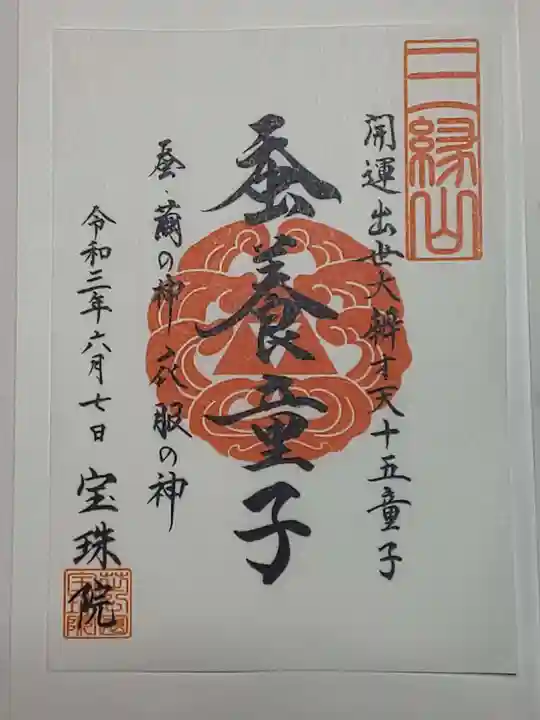 三縁山
開運出世大辨才天十五童子
蚕養童子
蚕・繭の神 衣服の神
令和三年六月七日 宝珠院